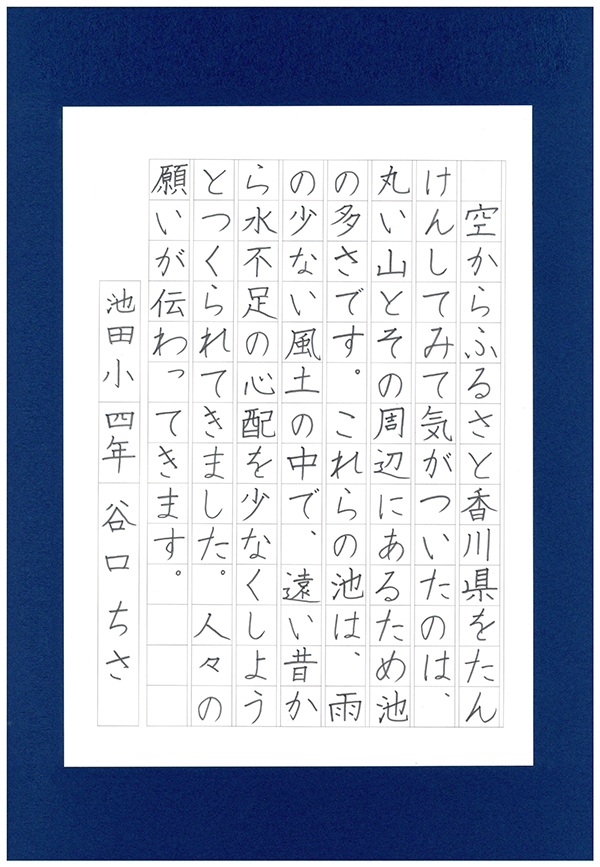 空からふるさと香川県をたん
けんしてみて気がついたのは、
丸い山とその周辺にあるため池
の多さです。これらの池は、雨
の少ない風土の中で、遠い昔か
ら水不足の心配を少なくしよう
とつくられてきました。人々の
願いが伝わってきます。
池田小 四年 谷口 ちさ